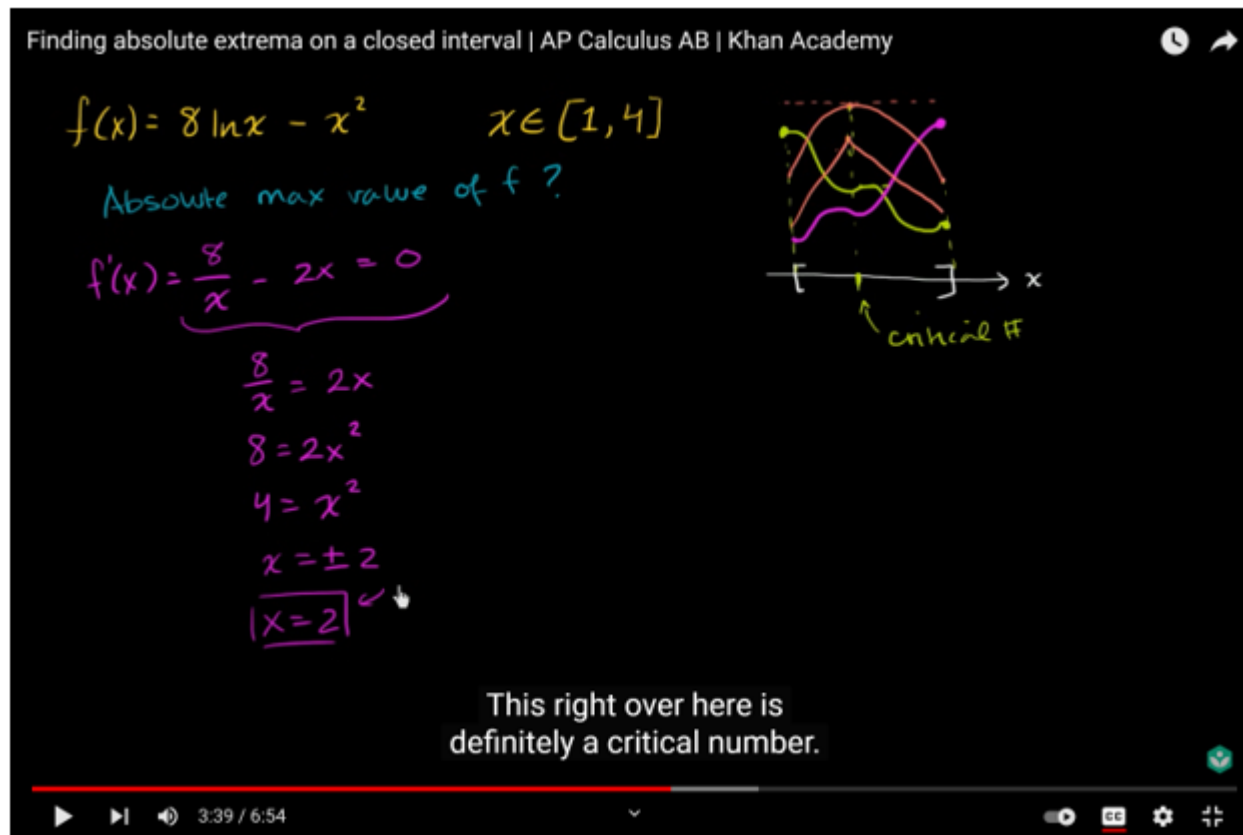 Finding absolute extrema on a closed interval | AP Calculus AB | Khan Academy
f(x) = 8 ln x - x² x ∈ [1, 4]
Absolute max value of f ?
f'(x) = 8/x - 2x = 0
8/x = 2x
8 = 2x²
4 = x²
x = ± 2
x = 2
[ ] x
critical #
This right over here is
definitely a critical number.
3:39 / 6:54
CC